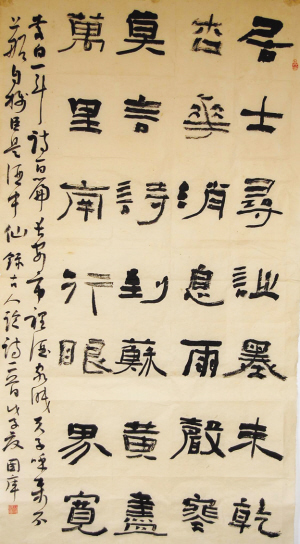 居士尋墨未乾
杏華消息雨聲寒
莫言詩到蘇黃盡
萬里南行眼界寬
李白一斗詩百篇長安市裡酒家眠天子呼來不
上船自稱臣是酒中仙錄古人論詩二首戊子夏國庠